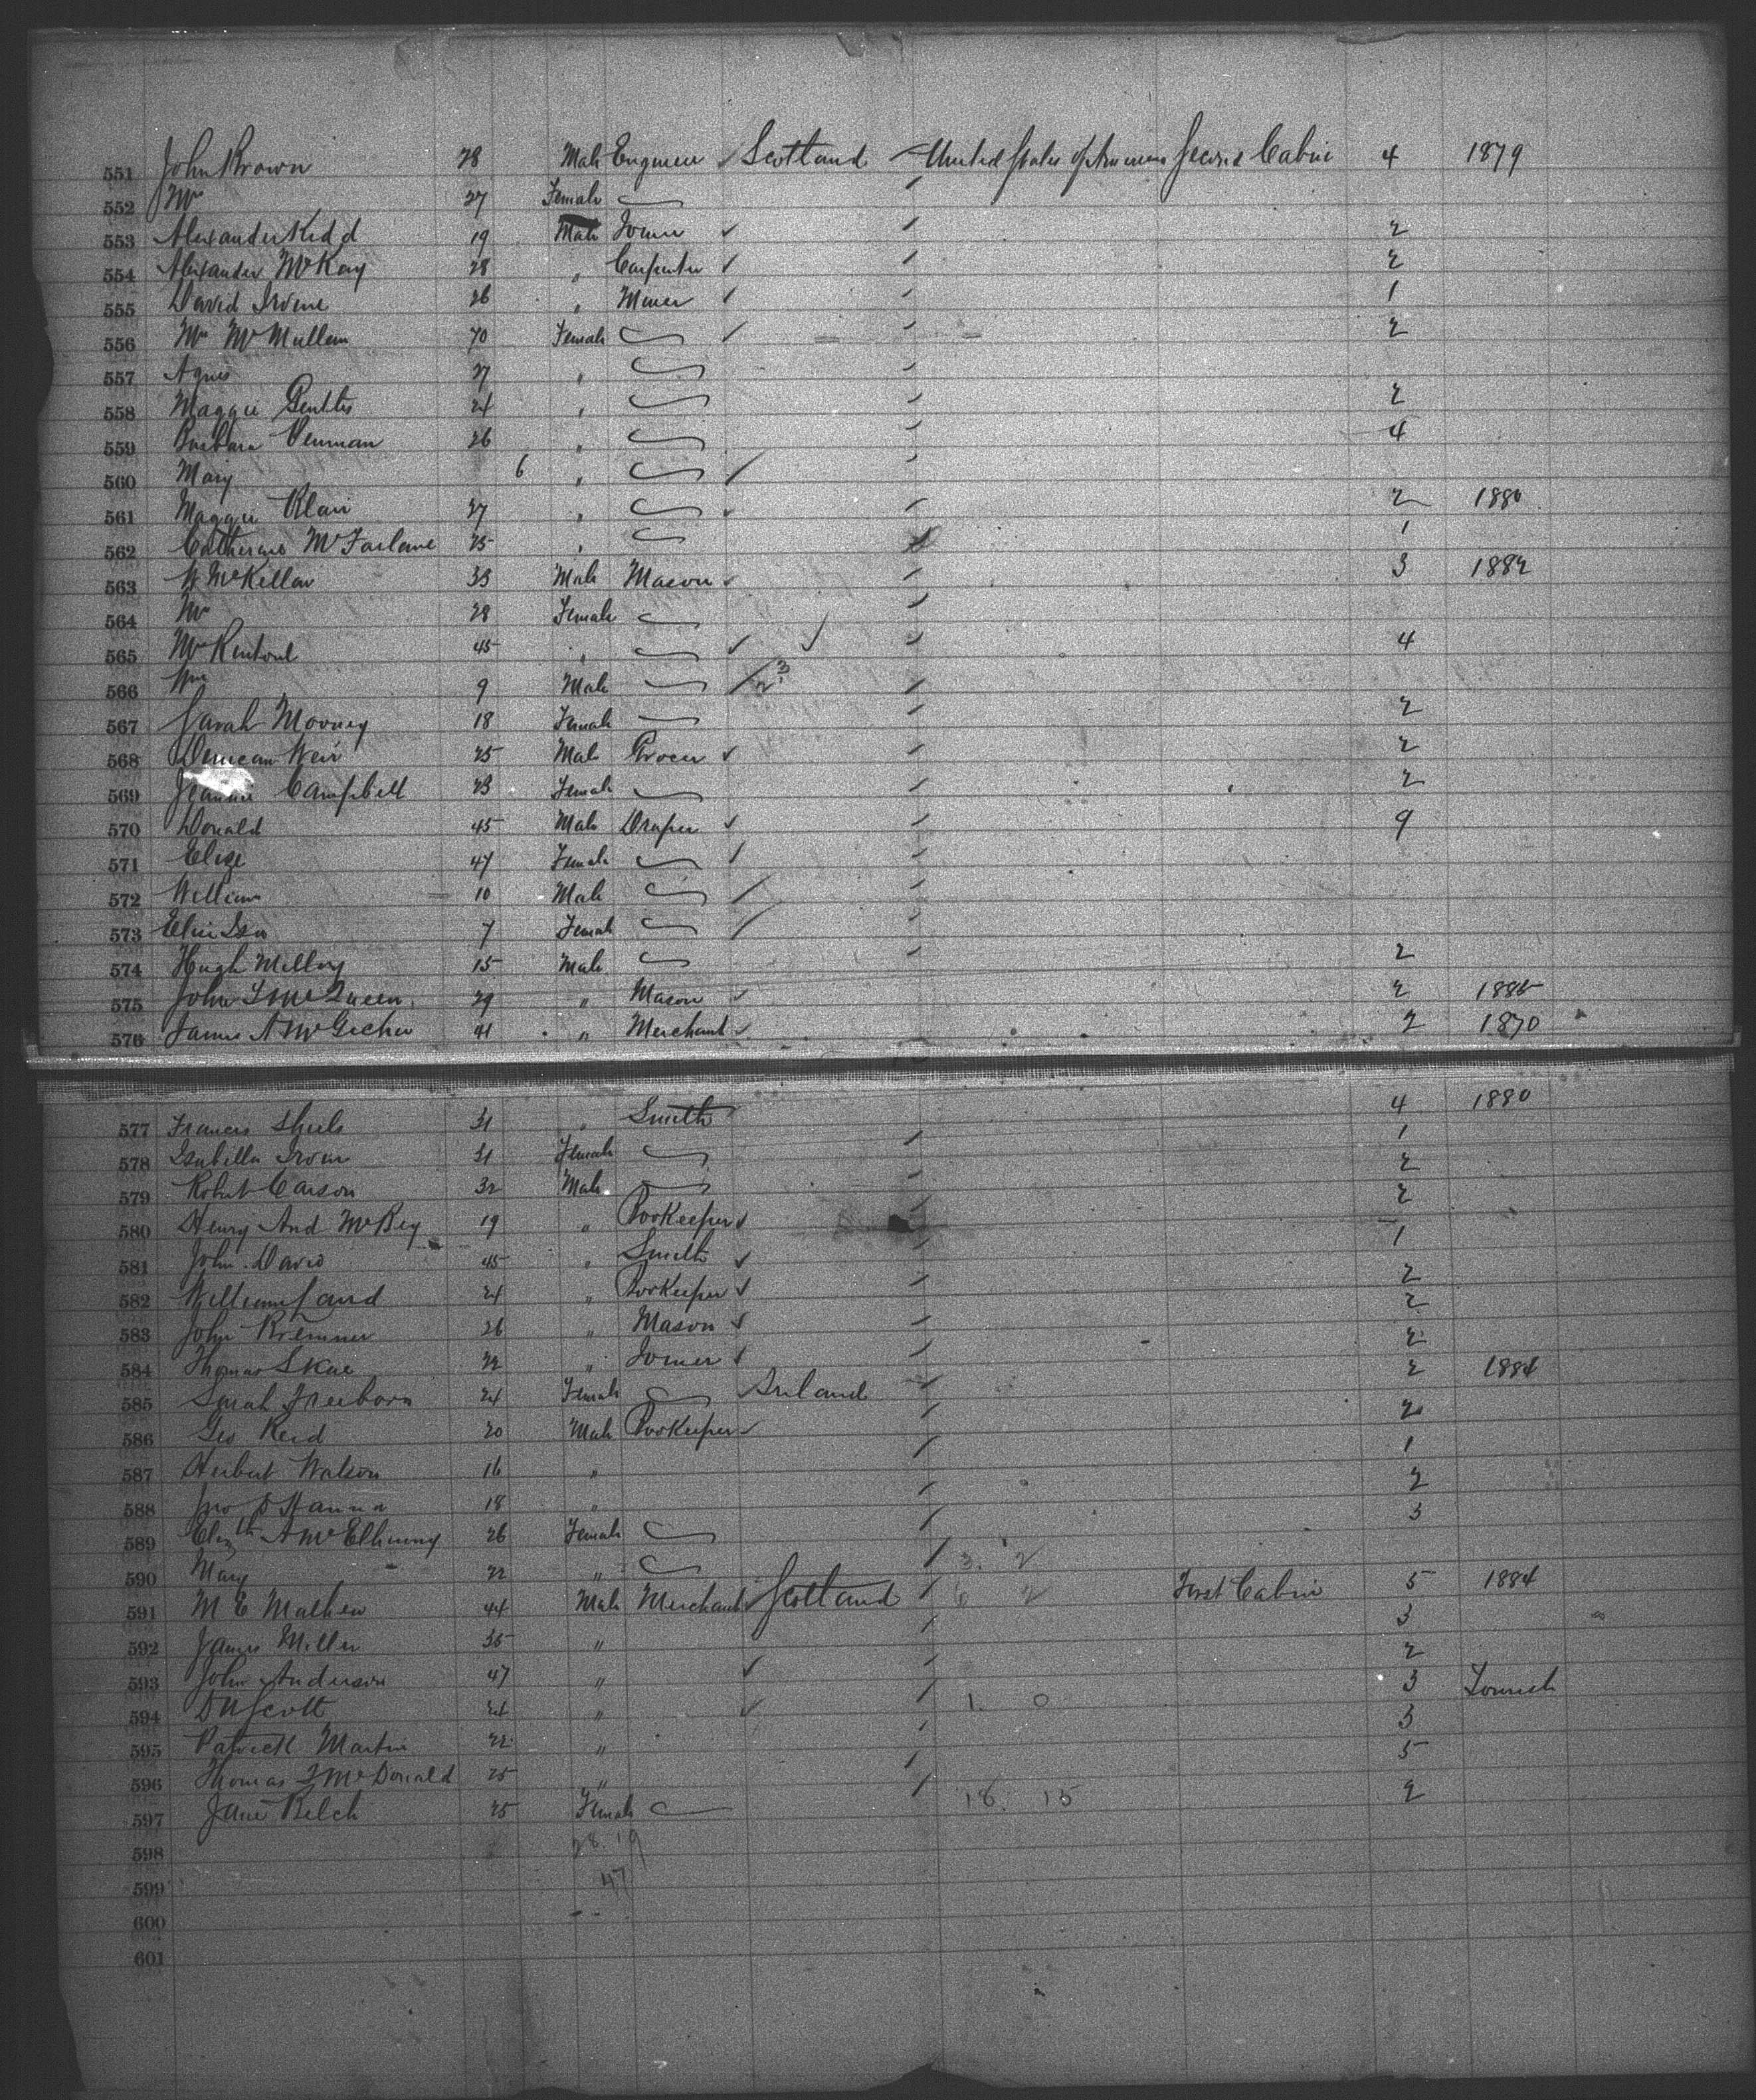 551 John Brown 28 Male Engineer Scotland United States of America Second Cabin 4 1879
552 Mrs 27 Female
553 Alexander Kidd 19 Male Joiner 2
554 Alexander McKay 28 " Carpenter 2
555 David Irvine 26 " Miner 1
556 Mrs McMullen 70 Female 2
557 Agnes 27 "
558 Maggie 24 " 2
559 Barbara Venman 26 " 4
560 Mary 6 "
561 Maggie Blair 27 " 2 1880
562 Catherine McFarlane 25 " 1
563 W McKellar 33 Male Mason 3 1882
564 Mrs 28 Female
565 Mrs Rentoul 45 " 4
566 Wm 9 Male
567 Sarah Mooney 18 Female 2
568 Duncan Weir 25 Male Grocer 2
569 Jeannie Campbell 23 Female 2
570 Donald 45 Male Draper 9
571 Eliza 47 Female
572 William 10 Male
573 7 Female
574 Hugh Milloy 15 Male 2
575 John McQueen 29 " Mason 2 1885
576 James A 41 " Merchant 2 1870
577 Francis Shiels 31 " Smith 4 1880
578 Isabella 31 Female 1
579 Robert Carson 32 Male 2
580 Henry And McBey 19 " Bookeeper 2
581 John David 45 " Smith 1
582 William Laud 24 " Bookeeper 2
583 John Bremner 26 " Mason 2
584 Thomas Skae 22 " Joiner 2
585 Sarah Freeborn 24 Female Ireland 2 1884
586 Geo Reid 20 Male Bookeeper 2
587 Herbert Watson 16 " 1
588 Jno D Hanna 18 " 2
589 Elizth A McElhinny 26 Female 3
590 Mary 22 " 3. 2
591 M E Mathew 44 Male Merchant Scotland 6 2 First Cabin 5 1884
592 James Miller 35 " 3
593 John Anderson 47 " 2
594 D N Scott 24 " 1. 0 3 Tourist
595 Patrick Martin 22 " 3
596 Thomas McDonald 25 " 5
597 Jane Belch 25 Female 18. 15 2
598 28. 19
599 47
600
601